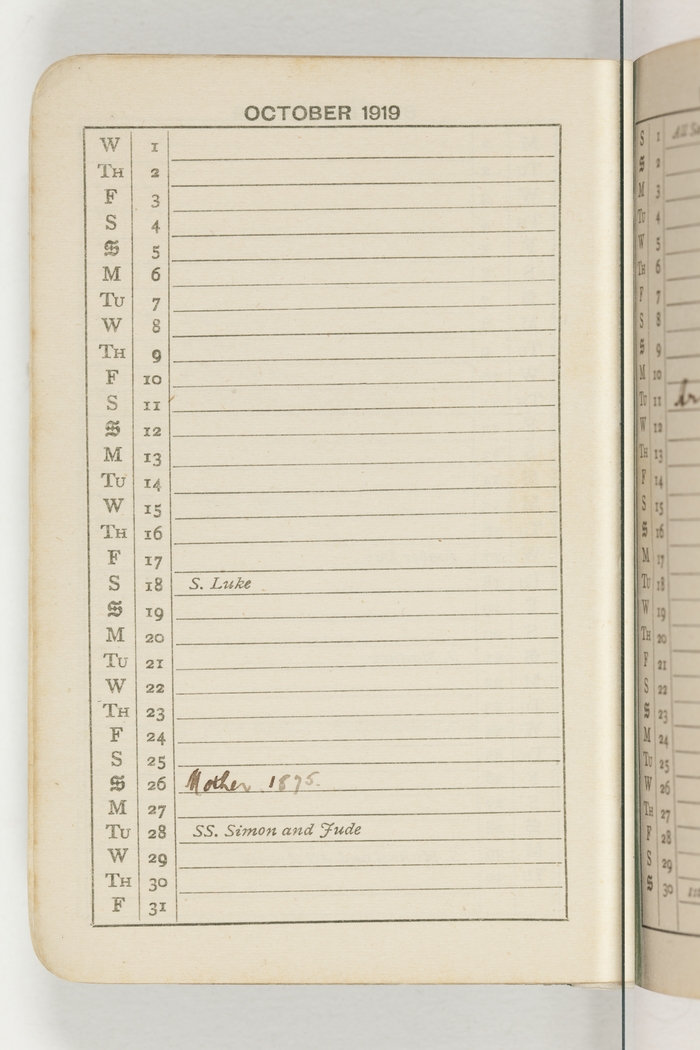 OCTOBER 1919
W 1
TH 2
F 3
S 4
S 5
M 6
TU 7
W 8
TH 9
F 10
S 11
S 12
M 13
TU 14
W 15
TH 16
F 17
S 18 S. Luke
S 19
M 20
TU 21
W 22
TH 23
F 24
S 25
S 26 Mother 1875
M 27
TU 28 SS. Simon and Jude
W 29
TH 30
F 31
S 1
S 2
M 3
TU 4
W 5
TH 6
F 7
S 8
S 9
M 10
TU 11
W 12
TH 13
F 14
S 15
S 16
M 17
TU 18
W 19
TH 20
F 21
S 22
S 23
M 24
TU 25
W 26
TH 27
F 28
S 29
S 30